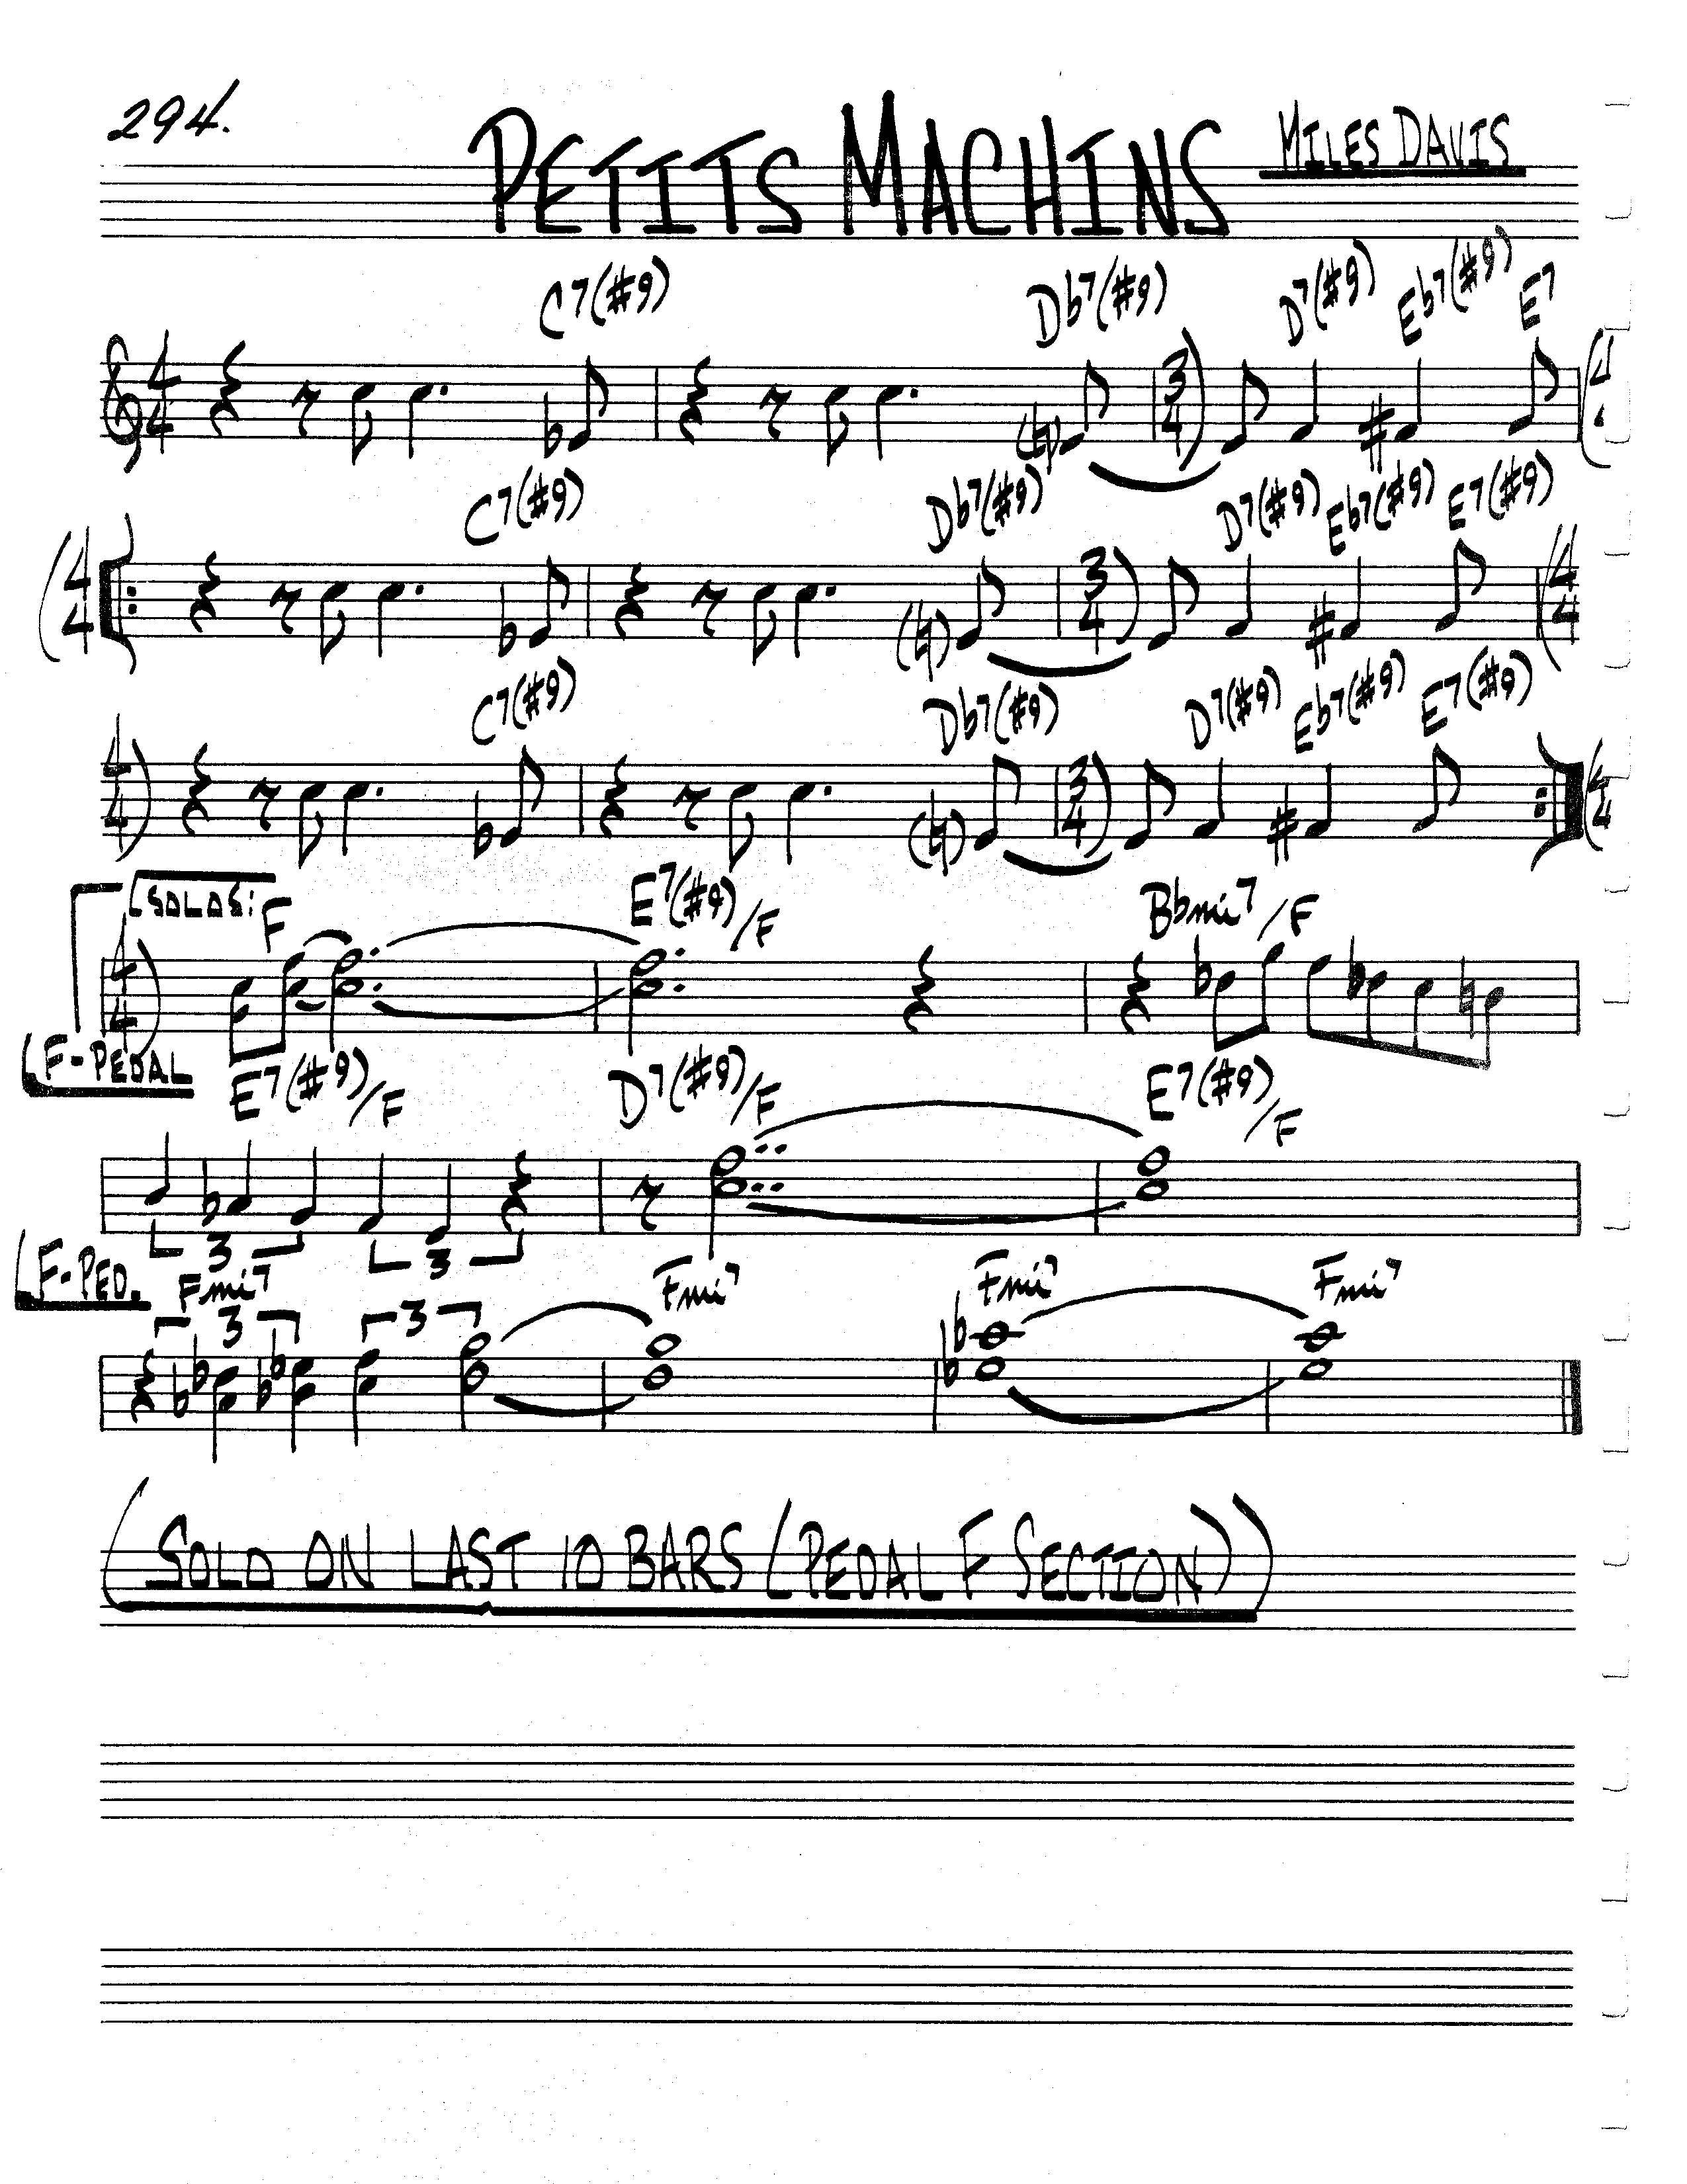 294.
PETITS MACHINS
MILES DAVIS
C7(#9) Db7(#9) D7(#9) Eb7(#9) E7
4 4 3 4
C7(#9) Db7(#9) D7(#9) Eb7(#9) E7(#9)
4 4 3 4 4 4
C7(#9) Db7(#9) D7(#9) Eb7(#9) E7(#9)
4 4 3 4 4 4
SOLOS: F E7(#9)/F Bbmi7/F
4 4
F-PEDAL
E7(#9)/F D7(#9)/F E7(#9)/F
3 3
F-PED. Fmi7 Fmi7 Fmi7 Fmi7
3 3
(SOLO ON LAST 10 BARS (PEDAL F SECTION))